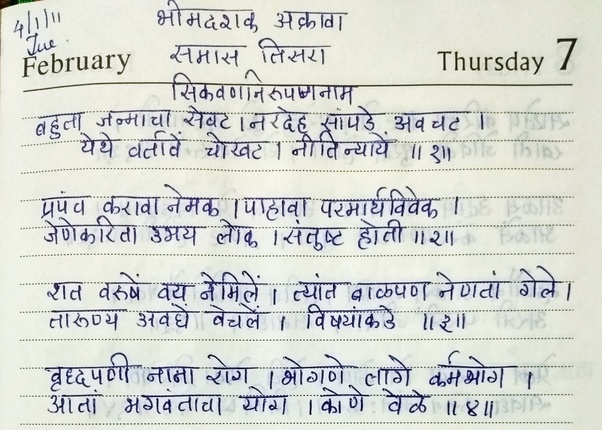 4/1/11
Tue.
भीमदशक अकरावा
समास तिसरा
February
Thursday 7
सिकवणनिरूपणनाम
बहुता जन्माचा सेवट । नरदेह सांपडे अवचट ।
येथे वर्तावें चोखट । नीतिन्यायें ॥१॥
प्रपंच करावा नेमक । पाहावा परमार्थविवेक ।
जेणेकरिता उभय लोक । संतुष्ट होती ॥२॥
शत वरुषें वय नेमिलें । त्यांत बाळपण नेणतां गेले ।
तारुण्य अवघें वेचलें । विषयांकडे ॥३॥
वृध्दपणी नाना रोग । भोगणे लागे कर्मभोग ।
आतां भगवंताचा योग । कोणे वेळे ॥४॥